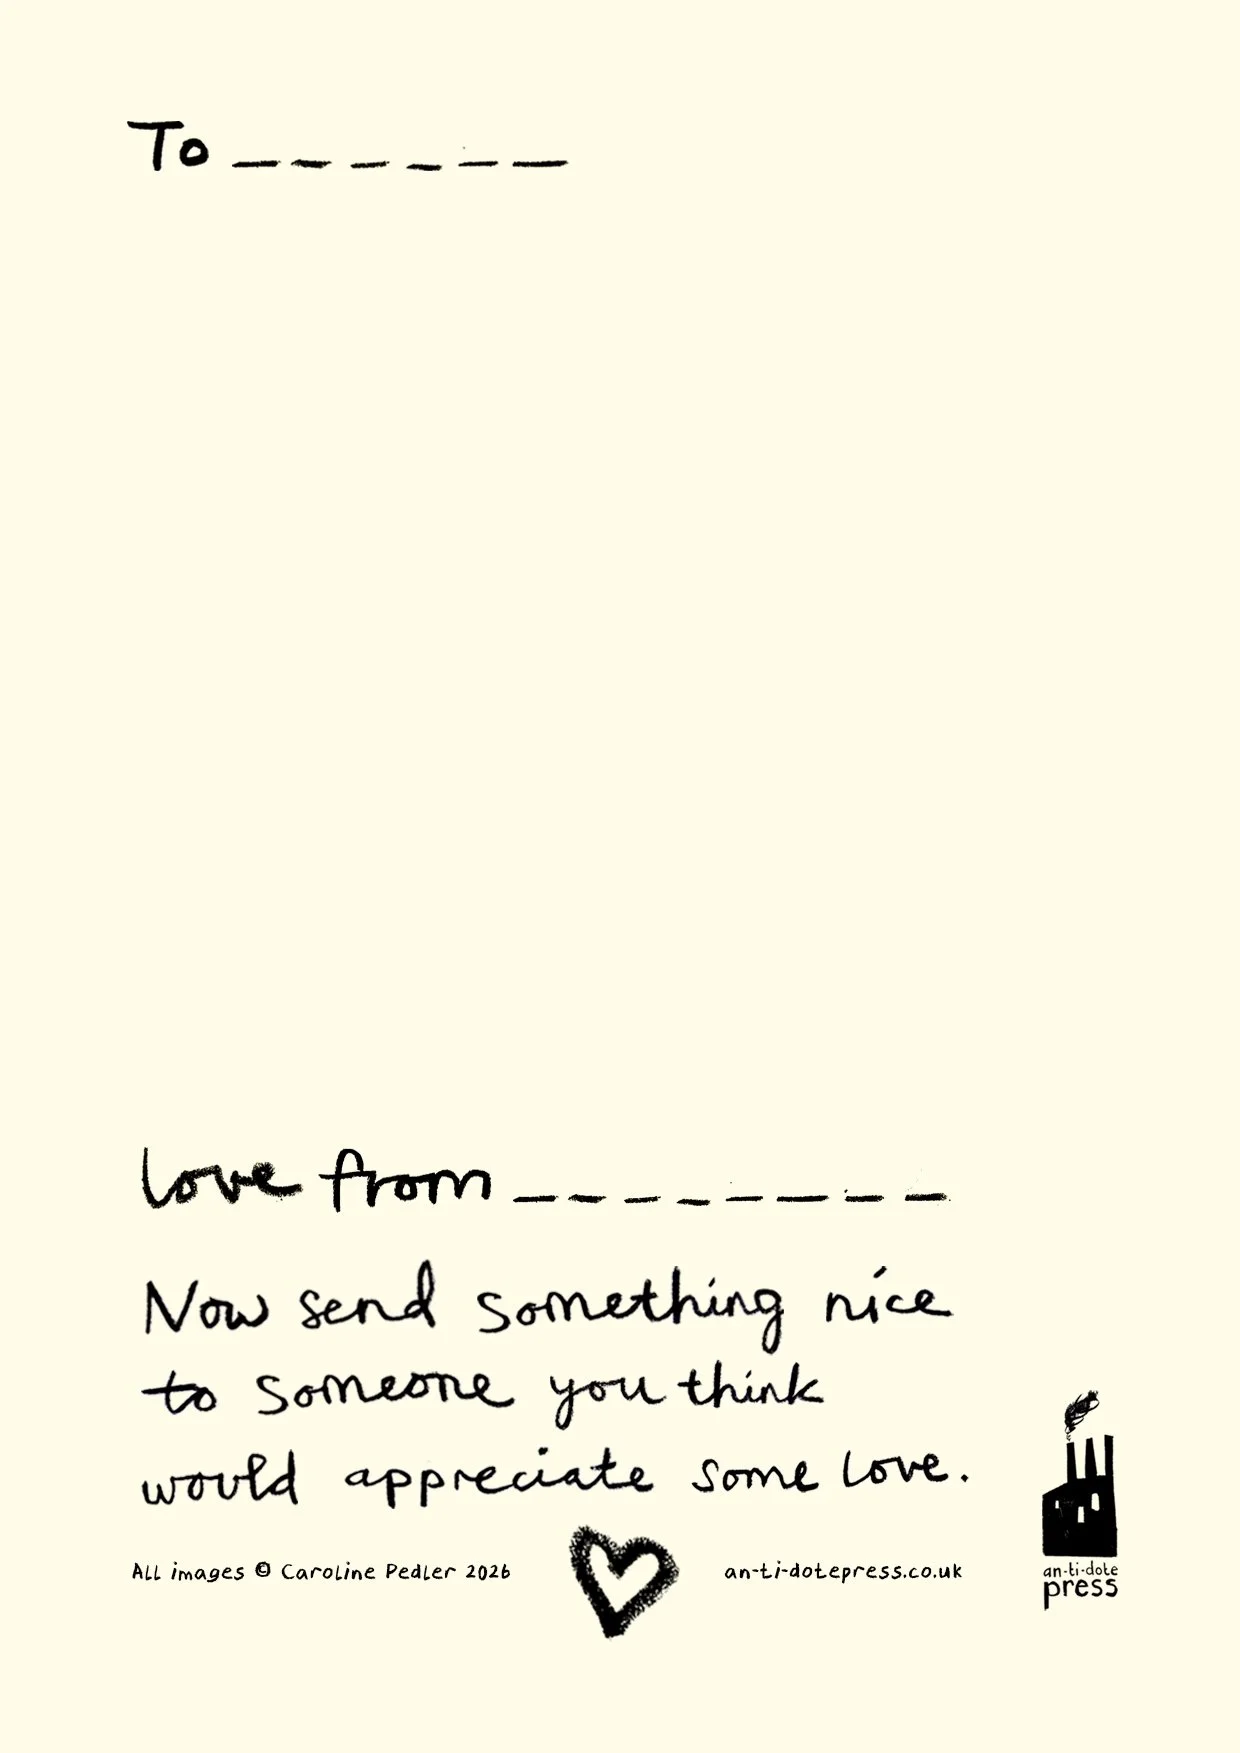 To _ _ _ _ _ _
love from _ _ _ _ _ _ _ _
Now send something nice
to someone you think
would appreciate some love.
All images © Caroline Pedler 2026
an-ti-dotepress.co.uk
an-ti-dote
press